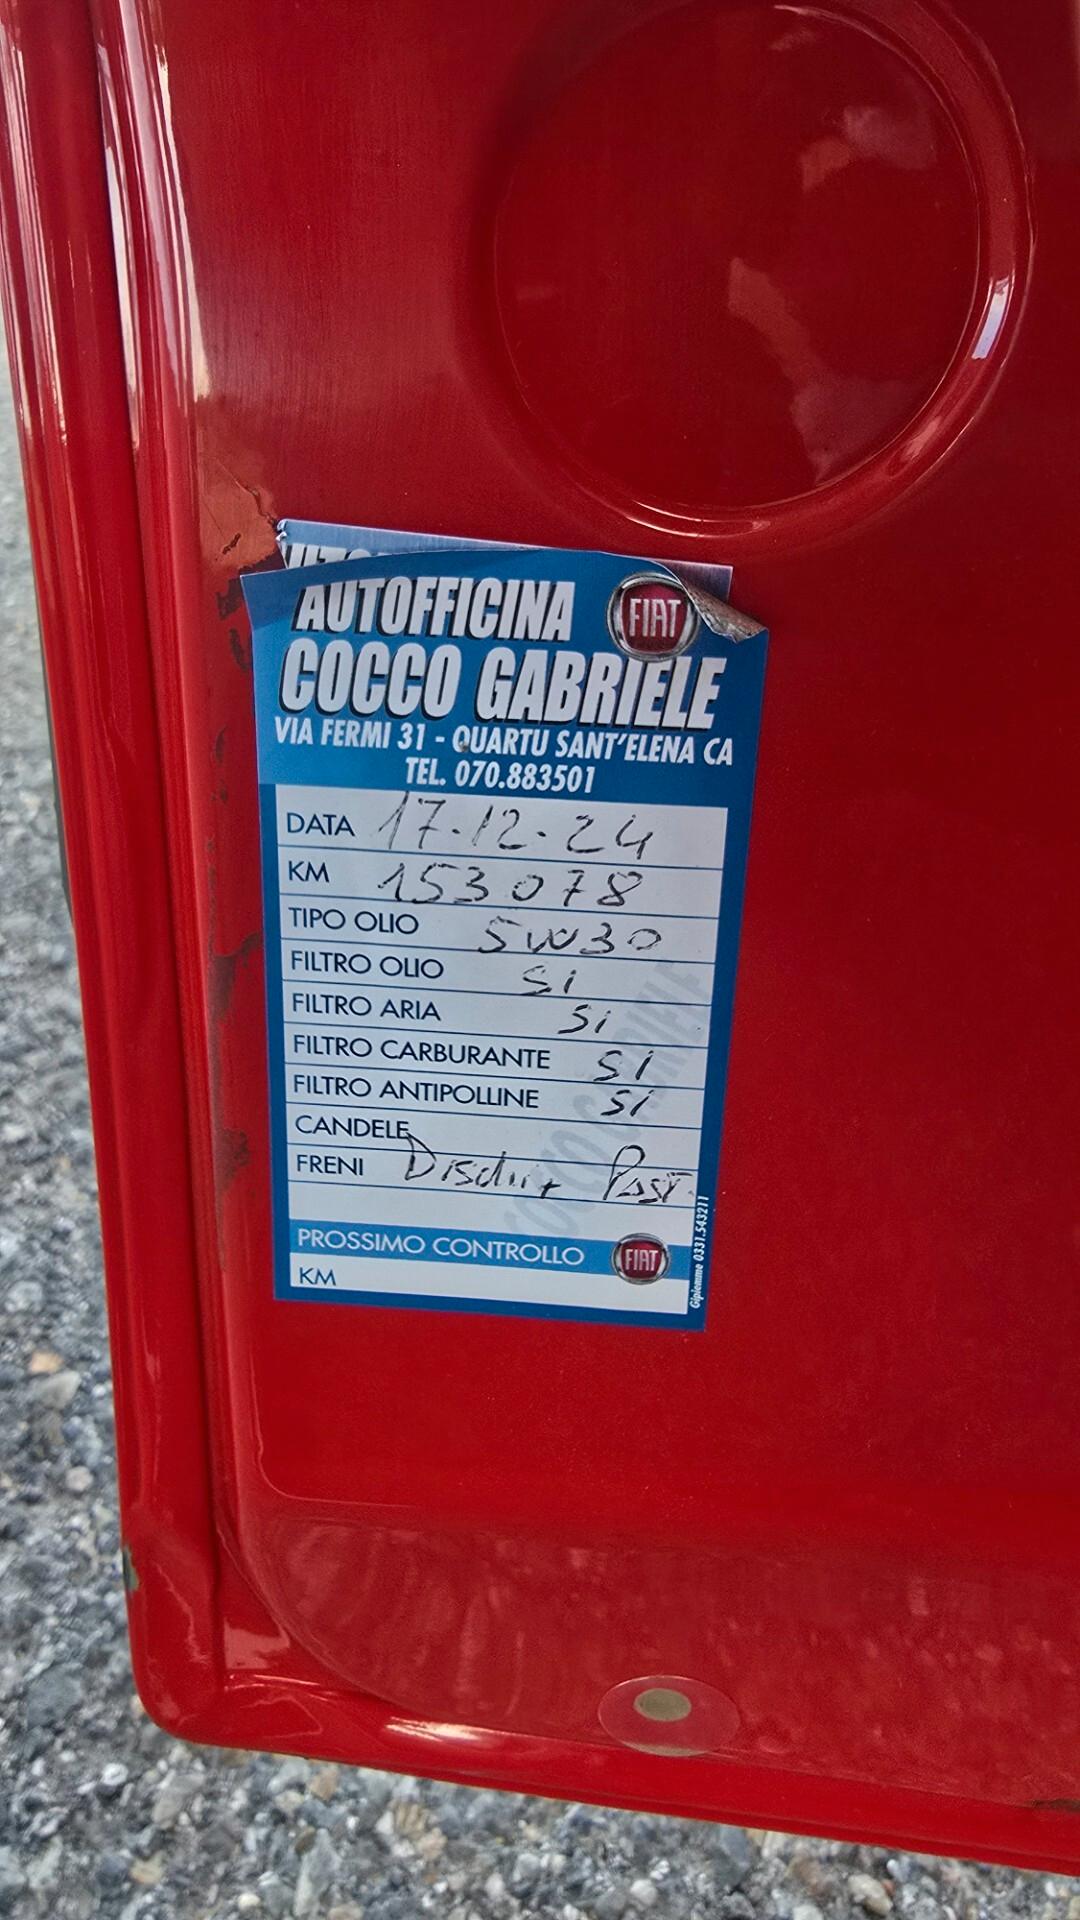 AUTOFFICINA
FIAT
COCCO GABRIELE
VIA FERMI 31 - QUARTU SANT'ELENA CA
TEL. 070.883501
DATA 17.12.24
KM 153078
TIPO OLIO 5W30
FILTRO OLIO Si
FILTRO ARIA Si
FILTRO CARBURANTE Si
FILTRO ANTIPOLLINE Si
CANDELE
FRENI Dischi + Past.
PROSSIMO CONTROLLO FIAT
KM
Gipiemme 0331.543211
COCCO GABRIELE